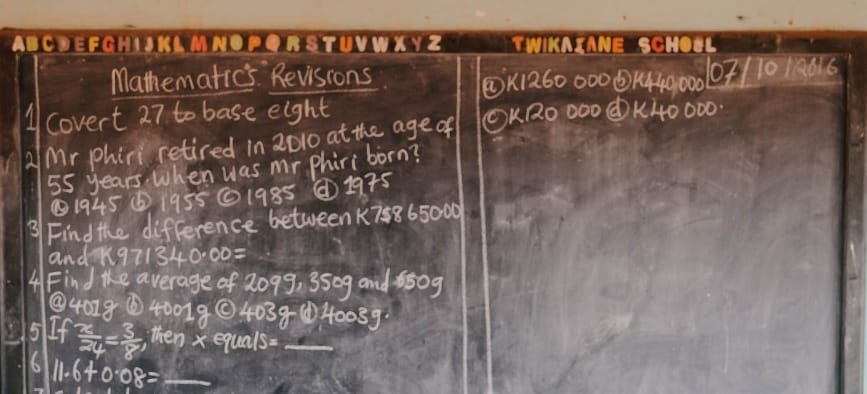 ABCDEFGHIJKLMNOPQRSTUVWXYZ
TWIKATANE SCHOOL
Mathematics Revisions
1 Covert 27 to base eight
2 Mr phiri retired in 2010 at the age of
55 years. when was mr phiri born?
ⓐ 1945 ⓑ 1955 ⓒ 1985 ⓓ 1975
3 Find the difference between
and K971340.00=
4 Find the average of 209g, 350g and 650g
ⓐ 401g ⓑ 4001g ⓒ 403g ⓓ 4003g.
5 If x/24 = 3/8, then x equals= ___
6 11.6+0.08= ___
07/10/2016
ⓐ K1260 000 ⓑ K440,000
ⓒ K120 000 ⓓ K140 000.